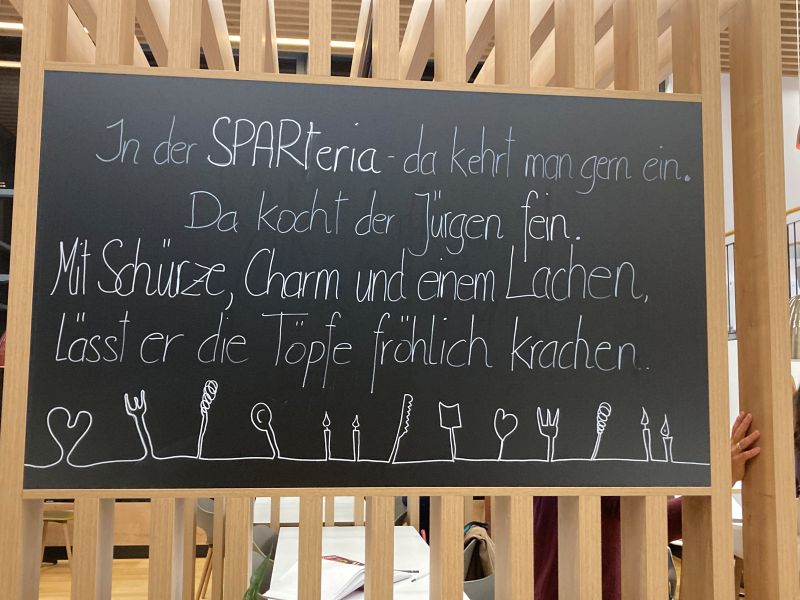 In der SPARteria - da kehrt man gern ein.
Da kocht der Jürgen fein.
Mit Schürze, Charm und einem Lachen,
Lässt er die Töpfe fröhlich krachen.